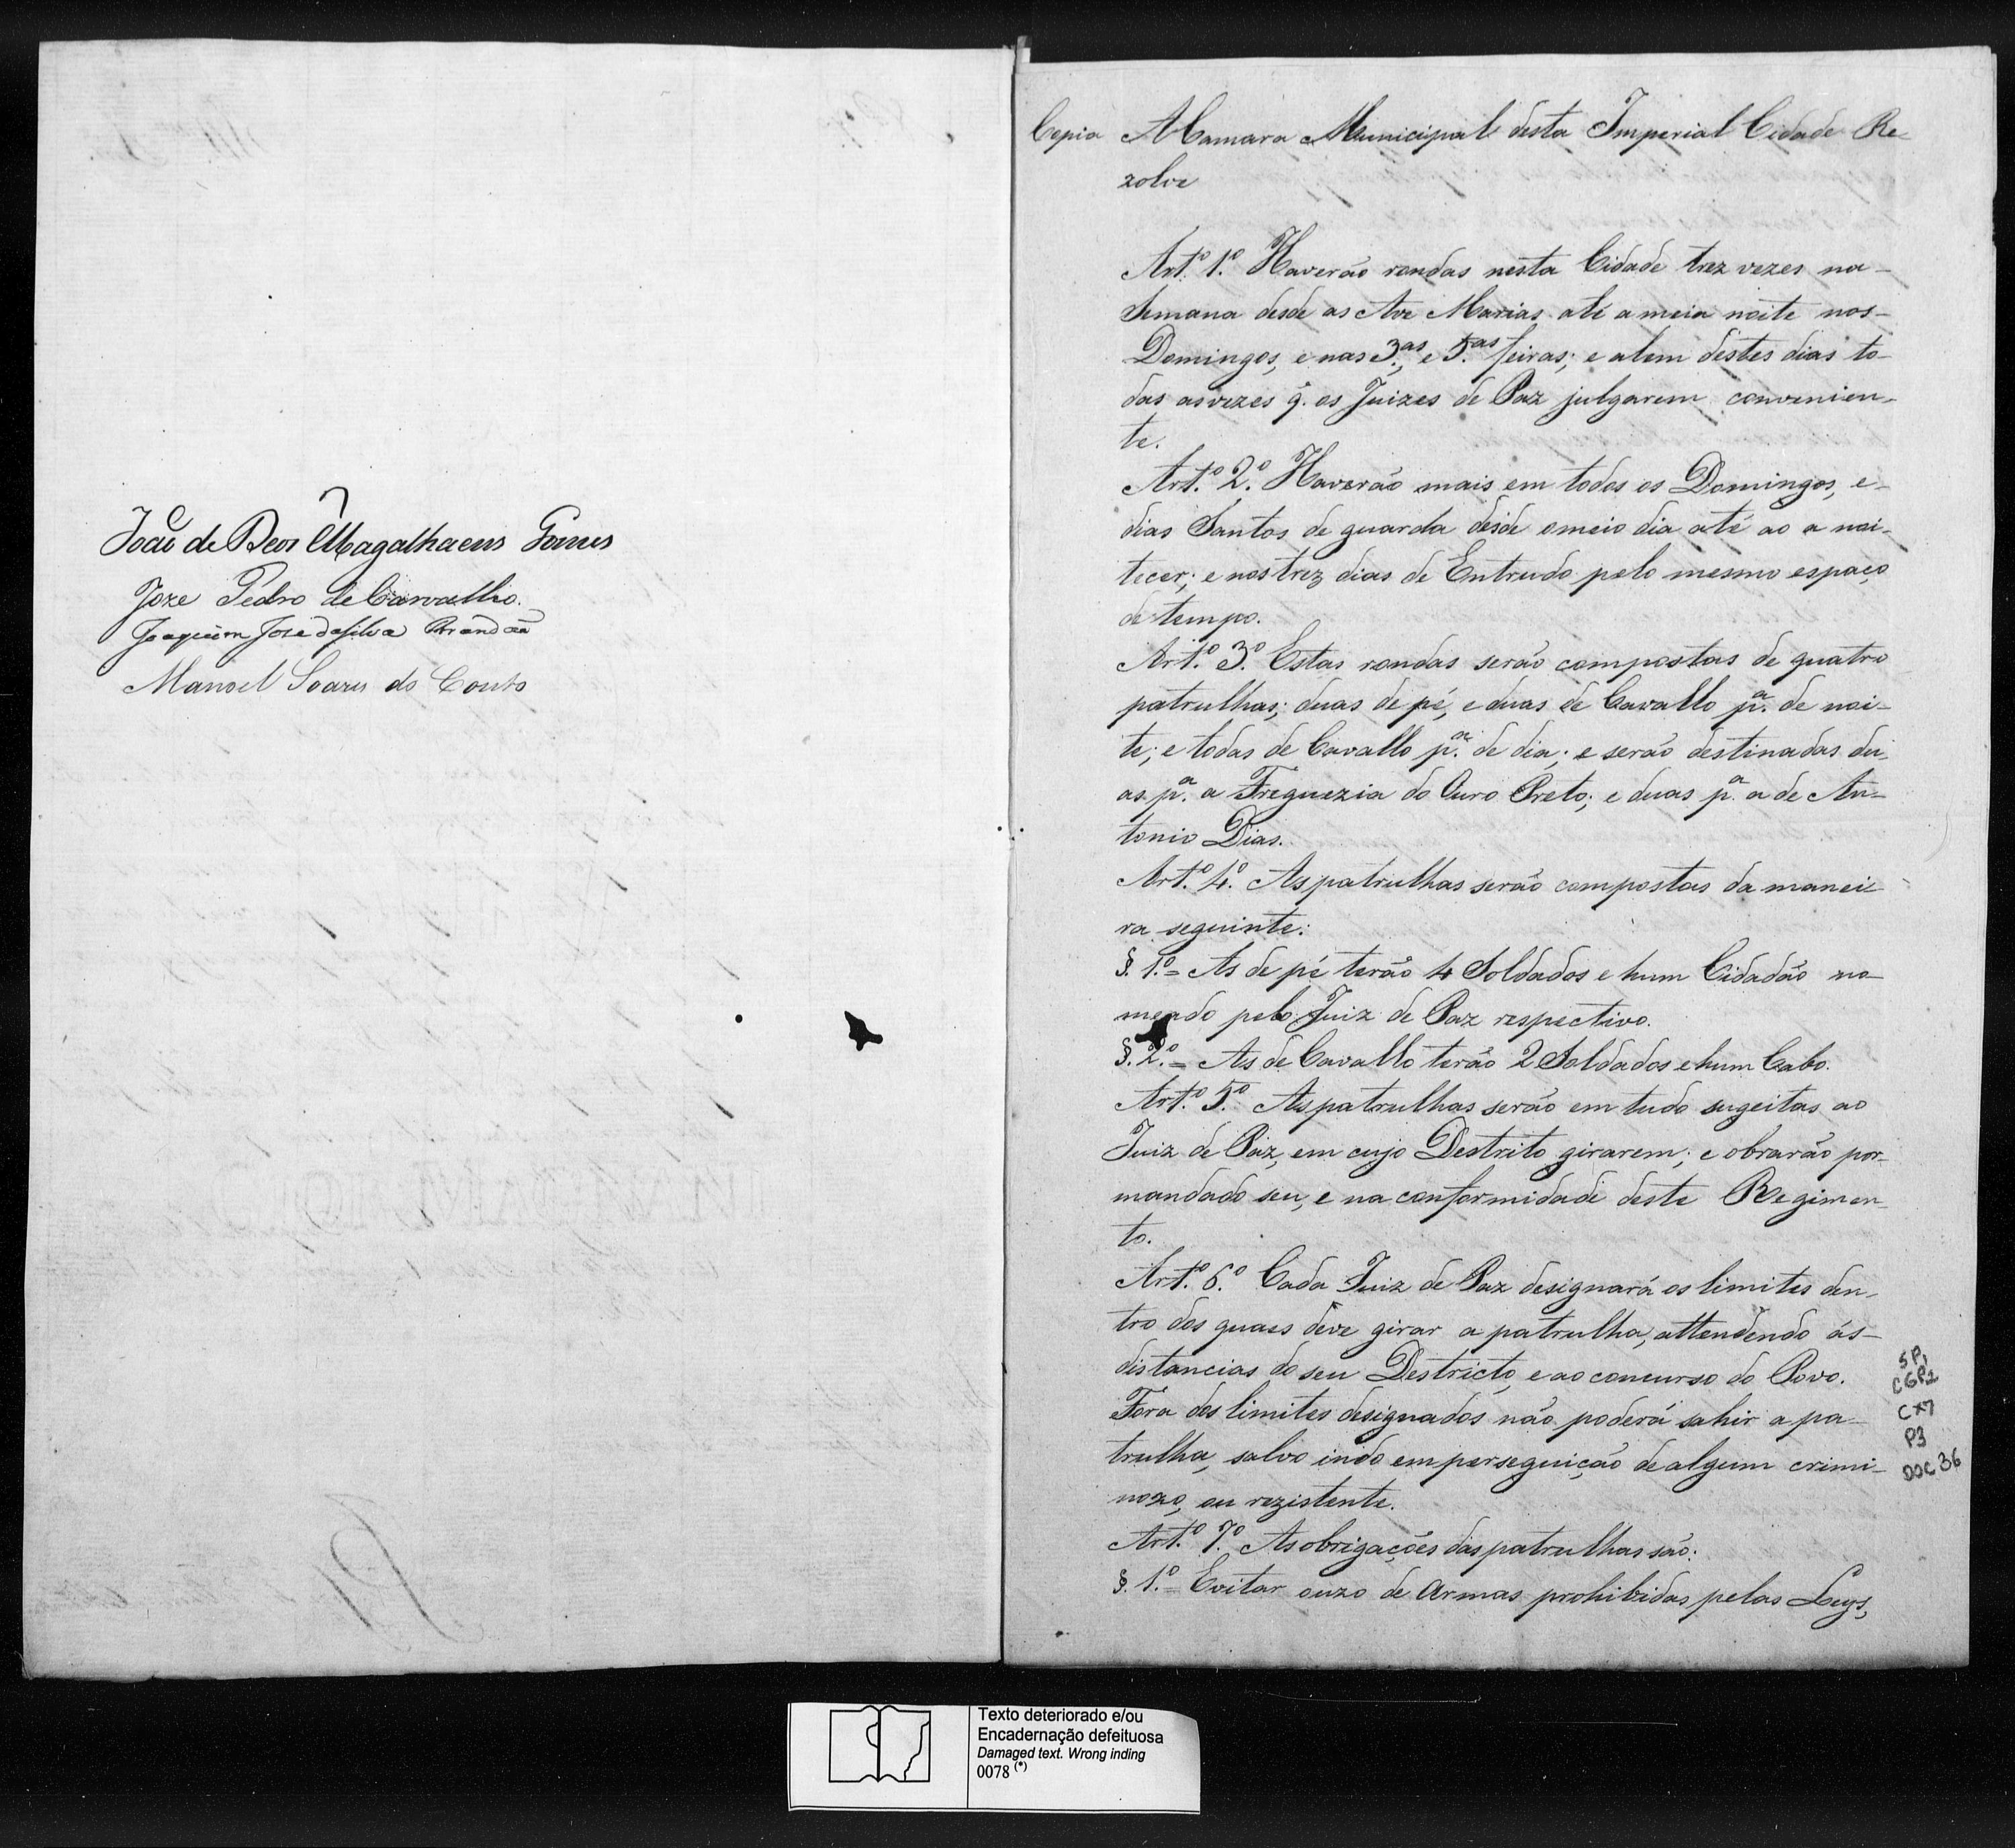 João de Deos Magalhaens Gomes
Joze Pedro de Carvalho.
Joaquim Jose da Silva Brandão
Manoel Soares do Couto
Copia A Camara Municipal desta Imperial Cidade Re-
zolve
Art.º 1.º Haverão rondas nesta Cidade trez vezes na-
Semana desde as Ave Marias até a meia noite nos-
Domingos, e nas 3.as, e 5.as feiras; e alem destes dias to-
das as vezes q̃. os Juizes de Paz julgarem convenien-
te.
Art.º 2.º Haverão mais em todos os Domingos, e-
dias Santos de guarda desde o meio dia até ao a noi-
tecer; e nos trez dias de Entrudo pelo mesmo espaço
de tempo.
Art.º 3.º Estas rondas serão compostas de quatro
patrulhas; duas de pé, e duas de Cavallo p.ª de noi-
te; e todas de Cavallo p.ª de dia; e serão destinadas du-
as p.ª a Freguezia do Ouro Preto; e duas p.ª a de An-
tonio Dias.
Art.º 4.º As patrulhas serão compostas da manei-
ra seguinte:
§. 1.º = As de pé terão 4 Soldados e hum Cidadão no-
meado pelo Juiz de Paz respectivo.
§. 2.º = As de Cavallo terão 2 Soldados e hum Cabo.
Art.º 5.º As patrulhas serão em tudo sugeitas ao
Juiz de Paz, em cujo Destrito girarem; e obrarão por-
mandado seu, e na conformidade deste Regimen-
to.
Art.º 6.º Cada Juiz de Paz designará os limites den-
tro dos quaes deve girar a patrulha, attendendo ás-
distancias do seu Destricto, e ao concurso do Povo.
Fora dos limites designados não poderá sahir a pa-
trulha, salvo indo em perseguição de algum crimi-
nozo, ou rezistente.
Art.º 7.º As obrigações das patrulhas são:
§. 1.º = Evitar o uzo de Armas prohibidas pelas Leys,
SP,
CGP1
CX7
P3
DOC 36
Texto deteriorado e/ou
Encadernação defeituosa
Damaged text. Wrong inding
0078 (*)